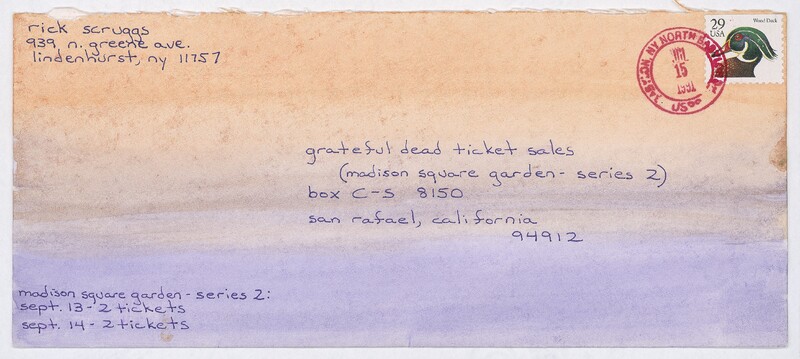 rick scruggs
939 n. greene ave.
lindenhurst, ny 11757
29
USA
Wood Duck
BABYLON, NY NORTH BABYLON
15
1991
USPO
grateful dead ticket sales
(madison square garden - series 2)
box C-S 8150
san rafael, california
94912
madison square garden - series 2:
sept. 13 - 2 tickets
sept. 14 - 2 tickets